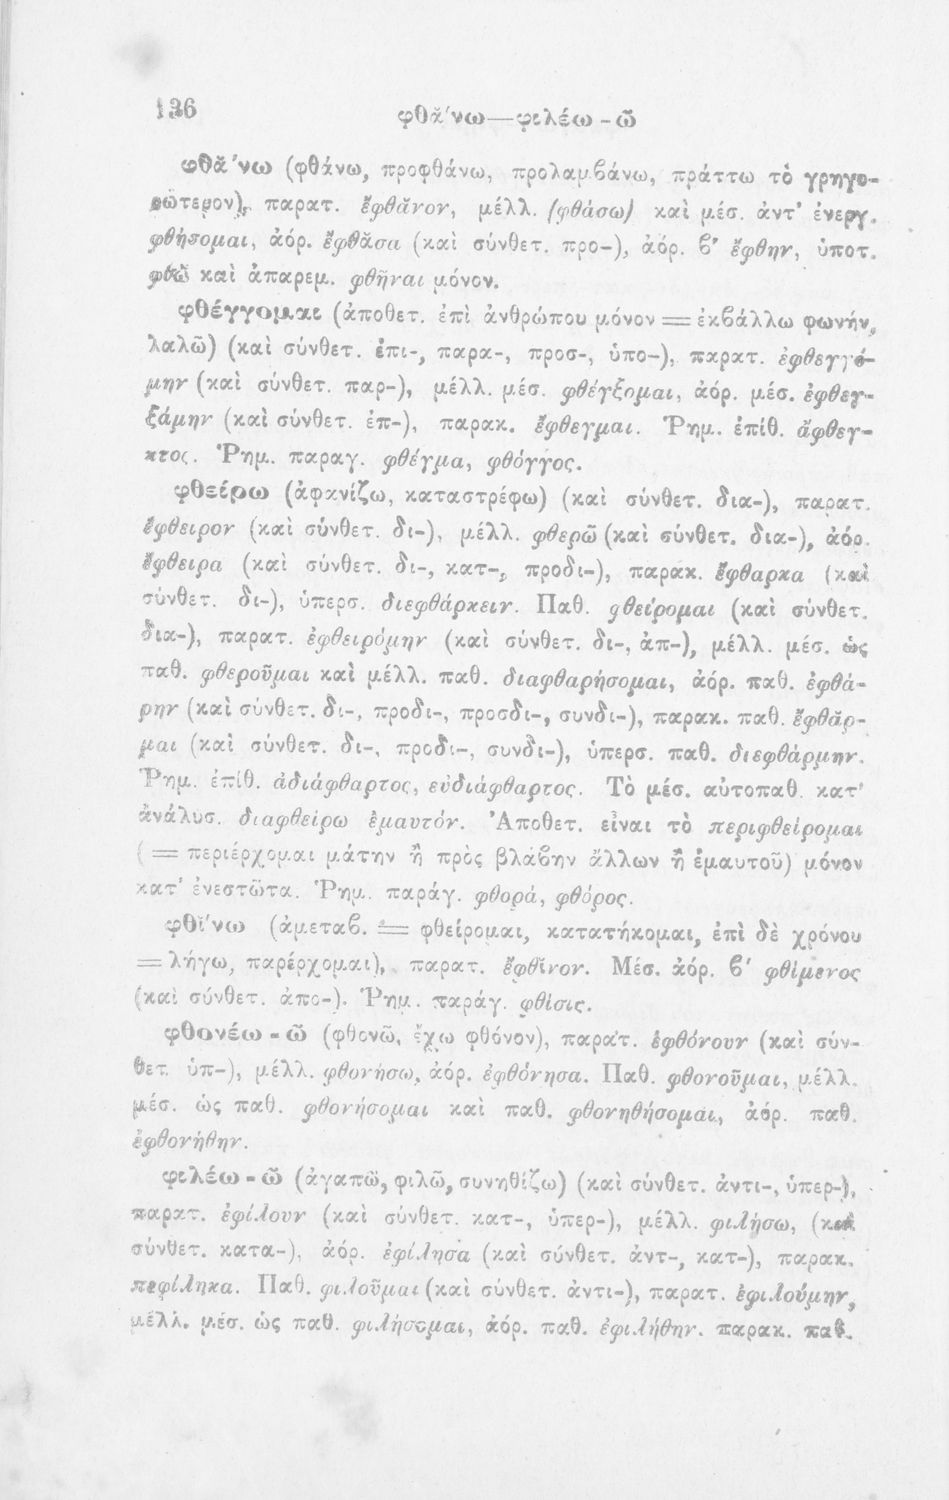 136
φθᾰ́νω—φιλέω-ῶ
φθᾰ́νω (φθάνω, προφθάνω, προλαμβάνω, πράττω τὸ γρηγο-
ρώτερον), παρατ. ἔφθᾰνον, μέλλ. (φθάσω) καὶ μέσ. ἀντ' ἐνεργ.
φθήσομαι, ἀόρ. ἔφθᾰσα (καὶ σύνθετ. προ-), ἀόρ. ϐ' ἔφθην, ὑποτ.
φθῶ καὶ ἀπαρεμ. φθῆναι μόνον.
φθέγγομαι (ἀποθετ. ἐπὶ ἀνθρώπου μόνον = ἐκϐάλλω φωνήν,
λαλῶ) (καὶ σύνθετ. ἐπι-, παρα-, προσ-, ὑπο-), παρατ. ἐφθεγγό-
μην (καὶ σύνθετ. παρ-), μέλλ. μέσ. φθέγξομαι, ἀόρ. μέσ. ἐφθεγ-
ξάμην (καὶ σύνθετ. ἐπ-), παρακ. ἔφθεγμαι. Ῥημ. ἐπίθ. ἄφθεγ-
κτος. Ῥημ. παραγ. φθέγμα, φθόγγος.
φθείρω (ἀφανίζω, καταστρέφω) (καὶ σύνθετ. δια-), παρατ.
ἔφθειρον (καὶ σύνθετ. δι-), μέλλ. φθερῶ (καὶ σύνθετ. δια-), ἀόρ.
ἔφθειρα (καὶ σύνθετ. δι-, κατ-, προδι-), παρακ. ἔφθαρκα (καὶ
σύνθετ. δι-), ὑπερσ. διεφθάρκειν. Παθ. φθείρομαι (καὶ σύνθετ.
δια-), παρατ. ἐφθειρόμην (καὶ σύνθετ. δι-, ἀπ-), μέλλ. μέσ. ὡς
παθ. φθεροῦμαι καὶ μέλλ. παθ. διαφθαρήσομαι, ἀόρ. παθ. ἐφθά-
ρην (καὶ σύνθετ. δι-, προδι-, προσδι-, συνδι-), παρακ. παθ. ἔφθᾰρ-
μαι (καὶ σύνθετ. δι-, προδι-, συνδι-), ὑπερσ. παθ. διεφθάρμην.
Ῥημ. ἐπίθ. ἀδιάφθαρτος, εὐδιάφθαρτος. Τὸ μέσ. αὐτοπαθ. κατ'
ἀνάλυσ. διαφθείρω ἐμαυτόν. Ἀποθετ. εἶναι τὸ περιφθείρομαι
(= περιέρχομαι μάτην ἢ πρὸς βλάϐην ἄλλων ἢ ἐμαυτοῦ) μόνον
κατ' ἐνεστῶτα. Ῥημ. παράγ. φθορά, φθόρος.
φθῐ́νω (ἀμεταϐ. = φθείρομαι, κατατήκομαι, ἐπὶ δὲ χρόνου
= λήγω, παρέρχομαι), παρατ. ἔφθῐνον. Μέσ. ἀόρ. ϐ' φθίμενος
(καὶ σύνθετ. ἀπο-). Ῥημ. παράγ. φθίσις.
φθονέω-ῶ (φθονῶ, ἔχω φθόνον), παρατ. ἐφθόνουν (καὶ σύν-
θετ. ὑπ-), μέλλ. φθονήσω, ἀόρ. ἐφθόνησα. Παθ. φθονοῦμαι, μέλλ.
μέσ. ὡς παθ. φθονήσομαι καὶ παθ. φθονηθήσομαι, ἀόρ. παθ.
ἐφθονήθην.
φιλέω-ῶ (ἀγαπῶ, φιλῶ, συνηθίζω) (καὶ σύνθετ. ἀντι-, ὑπερ-),
παρατ. ἐφίλουν (καὶ σύνθετ. κατ-, ὑπερ-), μέλλ. φιλήσω, (καὶ
σύνθετ. κατα-), ἀόρ. ἐφίλησα (καὶ σύνθετ. ἀντ-, κατ-), παρακ.
πεφίληκα. Παθ. φιλοῦμαι (καὶ σύνθετ. ἀντι-), παρατ. ἐφιλούμην,
μέλλ. μέσ. ὡς παθ. φιλήσομαι, ἀόρ. παθ. ἐφιλήθην. παρακ. παθ.